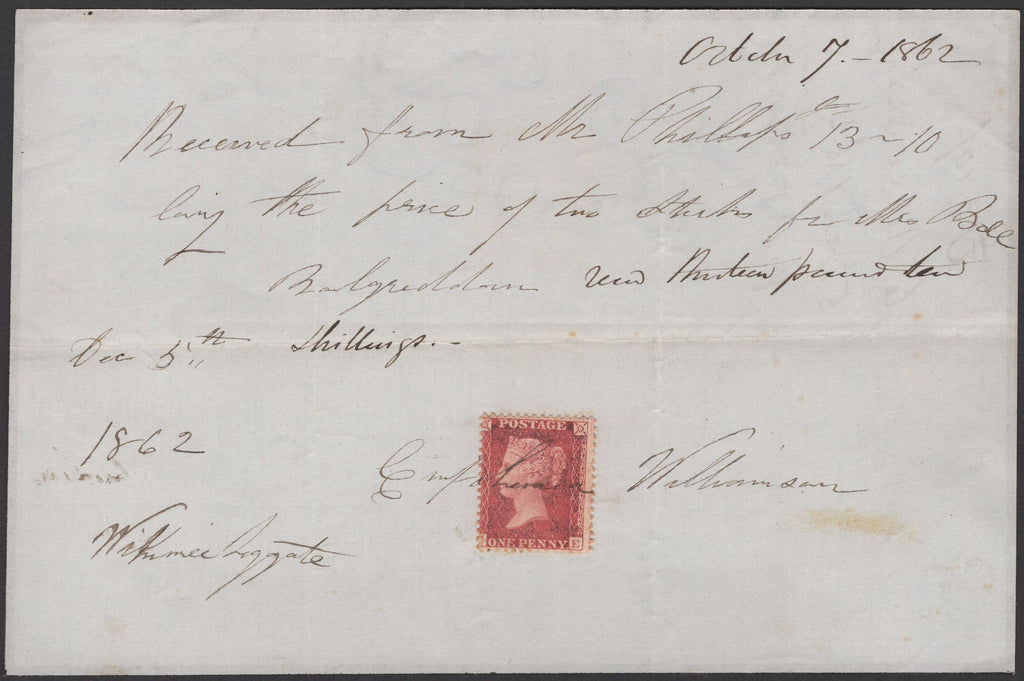 October 7. - 1862
Received from Mr Phillips £13 ~ 10
being the price of two Stirks for Mrs Bell
Balgreddan thirteen pound ten
Dec 5th Shillings. -
1862
POSTAGE
Euphemia Williamson
ONE PENNY
E
Leggate